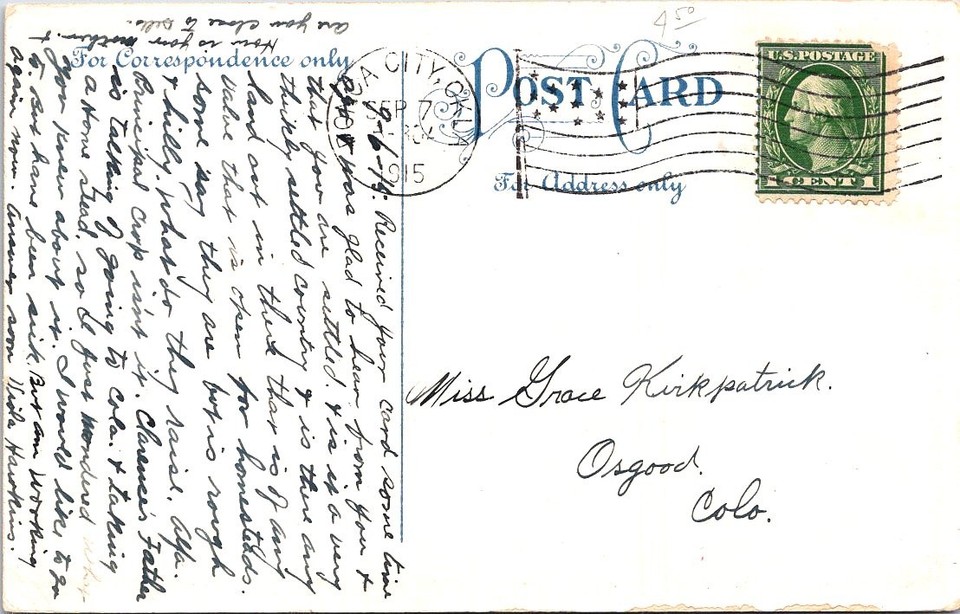 4 50
POST CARD
For Correspondence only
For Address only
U.S. POSTAGE
1 CENT 1
A CITY, OKLA
SEP 7
1915
Miss Grace Kirkpatrick.
Osgood.
Colo.
9-6-15. Received your card some time
ago & was glad to hear from you &
that you are settled. & is it a very
thickly settled country & is there any
land out in there that is of any
value that is open for homesteads.
some say they are but is rough
& hilly. what do they raise. Alfa.
Principal crop isn't it. Clarence's Father
is talking of going to Colo. & taking
a Home stead, so I just wondered
you knew about it. I would like to go
to. Cas have been sick. But am working
again now. Answer soon Hawkins.
How is your mother. &
are you close to